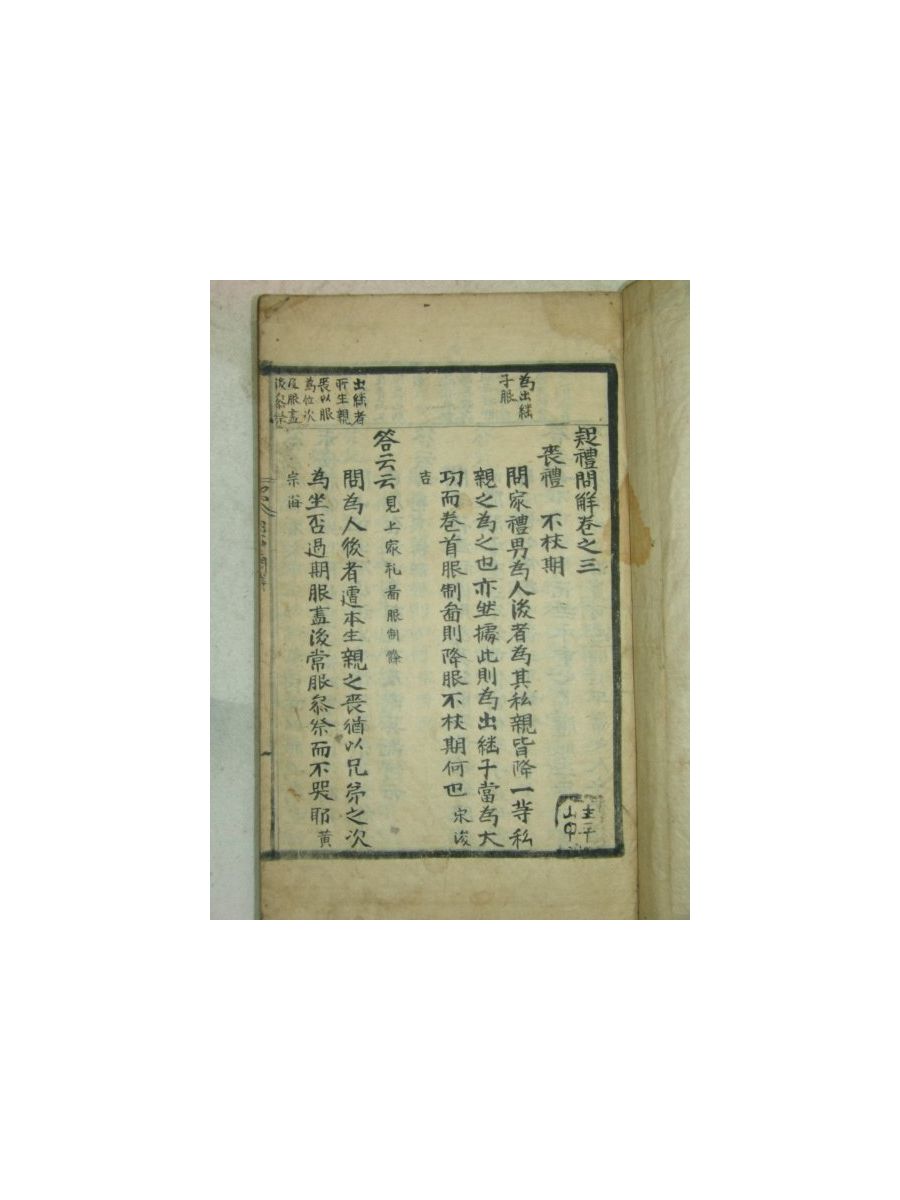 疑禮問解卷之三
喪禮 不杖期
為出継
子服
問家禮男為人後者為其私親皆降一等私
親之為之也亦然據此則為出継子當為大
功而卷首服制啚則降服不杖期何也 宋浚
吉
答云云 見上家礼啚服制條
出継者
所生親
喪以服
為位次
及服盡
後叅祭
問為人後者遭本生親之喪猶以兄弟之次
為坐否過期服盡後常服叅祭而不哭耶 黃
宗海
山中